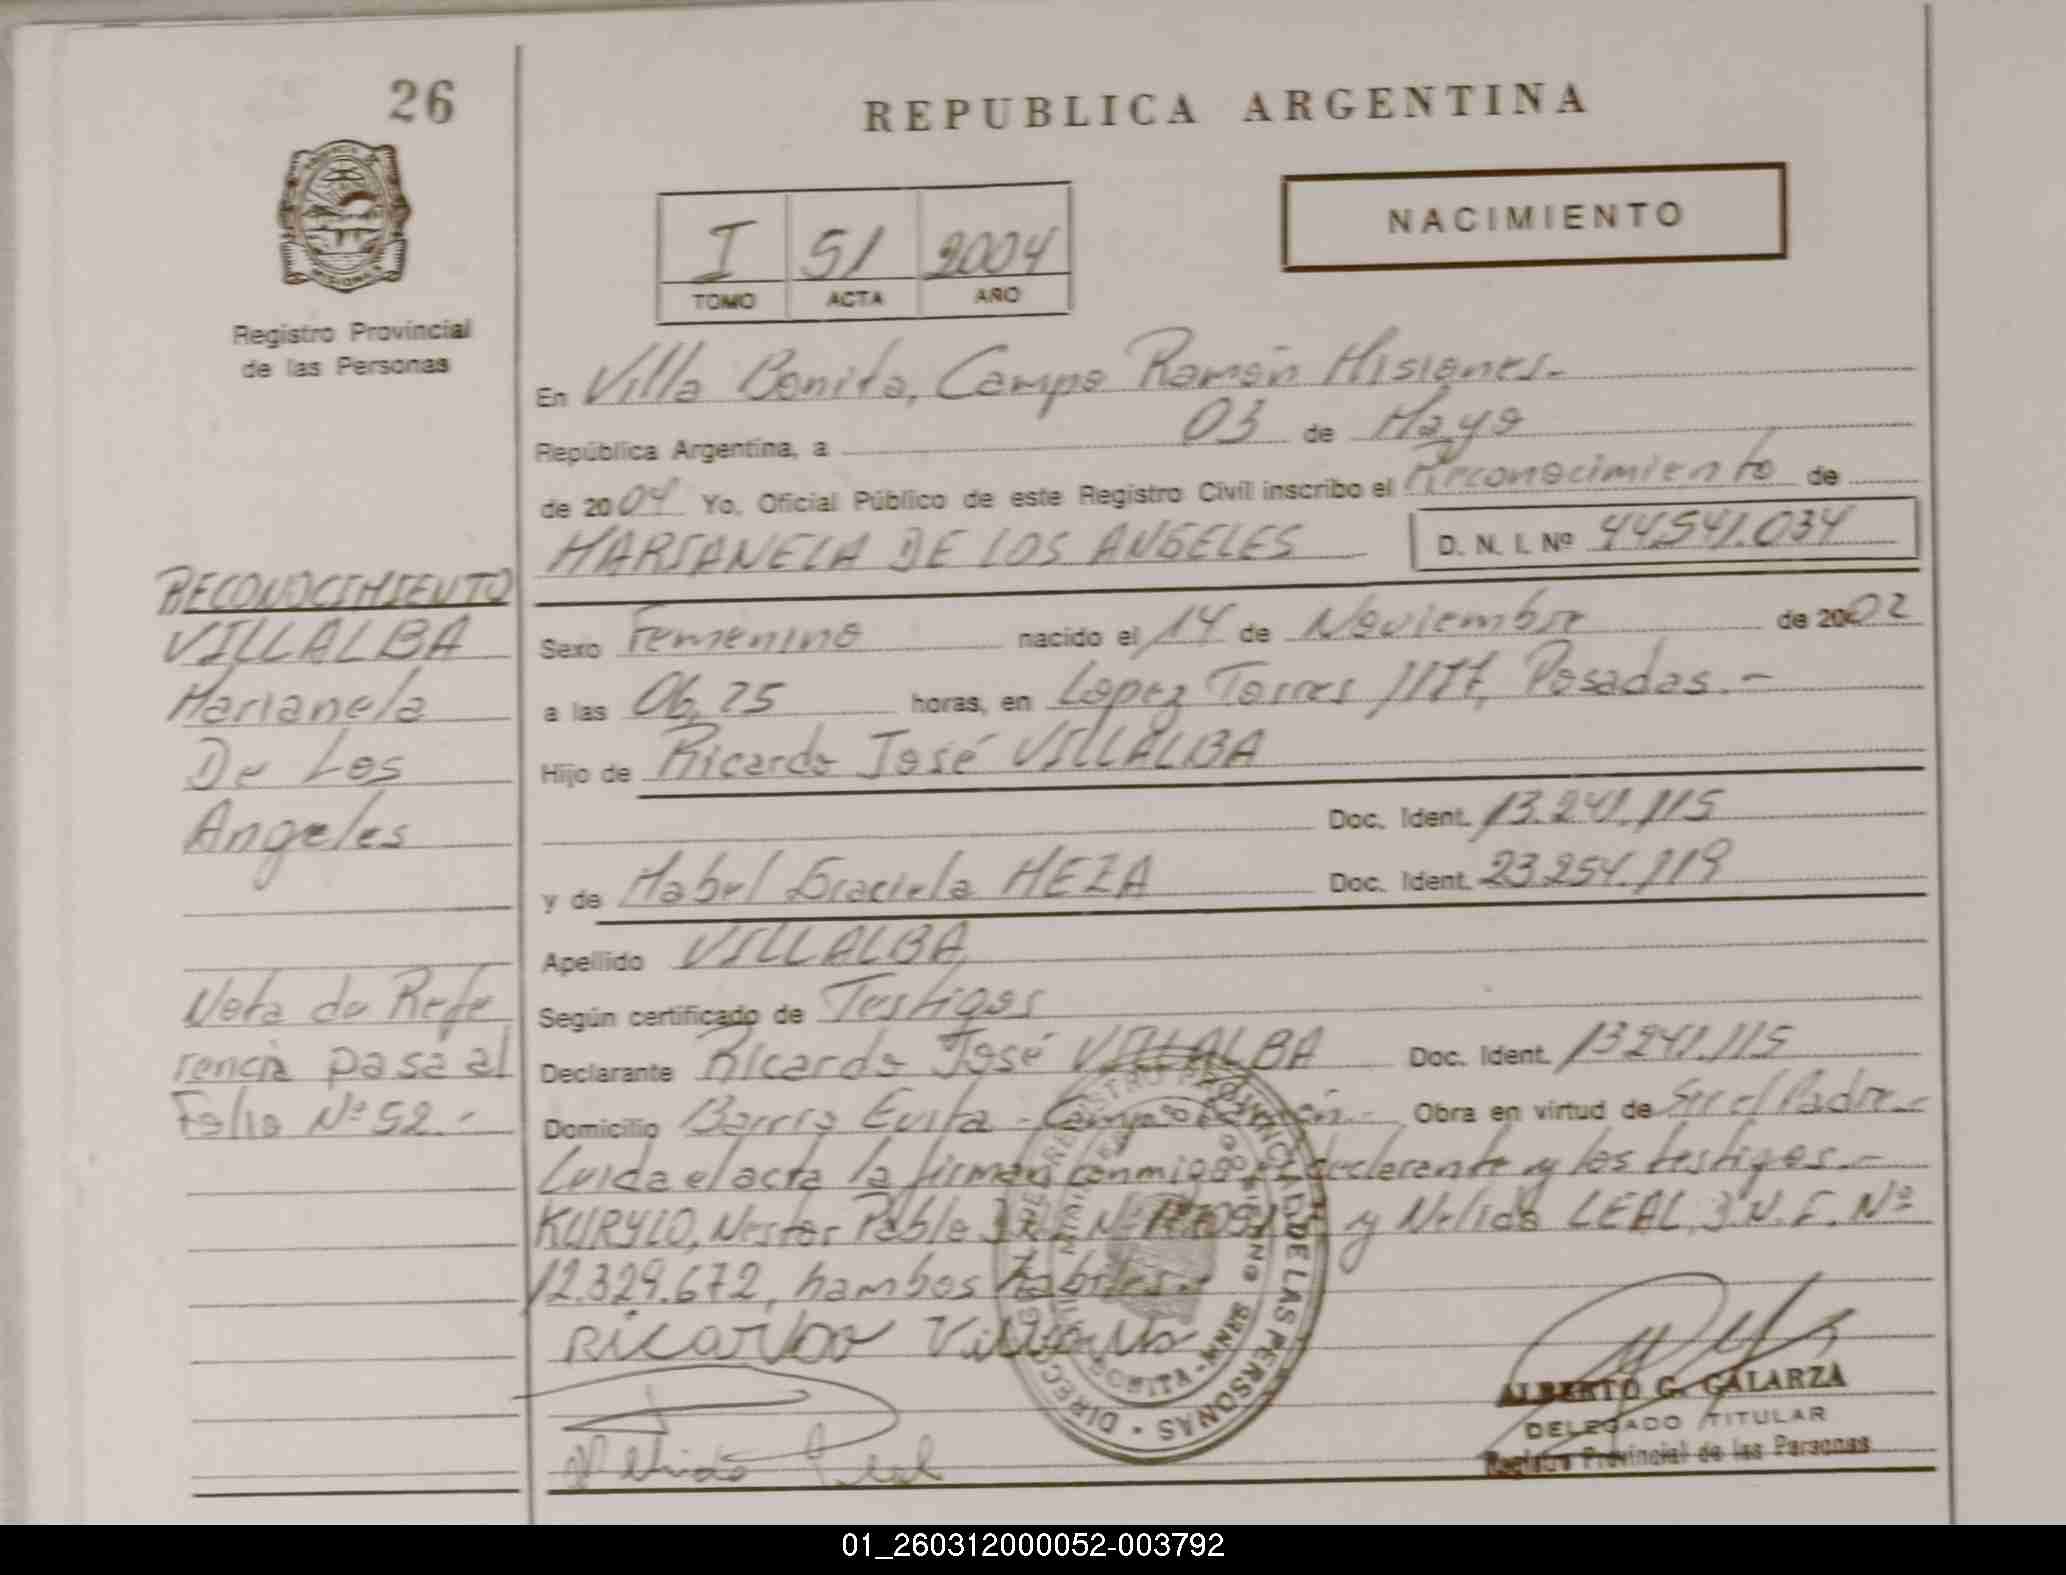 26
REPUBLICA ARGENTINA
NACIMIENTO
I 51 2004
TOMO ACTA AÑO
Registro Provincial
de las Personas
En Villa Bonita, Campo Ramón Misiones.-
República Argentina, a 03 de Mayo
de 2004 Yo, Oficial Público de este Registro Civil inscribo el Reconocimiento de
MARIANELA DE LOS ANGELES D. N. I. Nº 44.541.034
RECONOCIMIENTO
VILLALBA
Marianela
De Los
Angeles
Sexo Femenino nacido el 14 de Noviembre de 2002
a las 06,25 horas, en Lopez Torres 1177, Posadas.-
Hijo de Ricardo José VILLALBA
Doc. Ident. 13.241.115
y de Mabel Graciela MEZA Doc. Ident. 23.254.119
Apellido VILLALBA
Nota de Refe
rencia pasa al
Folio Nº 52.-
Según certificado de Testigos
Declarante Ricardo José VILLALBA Doc. Ident. 13.241.115
Domicilio Barrio Evita - Campo Ramón.- Obra en virtud de Ser el Padre.-
Leida el acta la firman conmigo el declarante y los testigos.-
KURYLO, Nestor Pablo y Nelida LEAL, Nº
12.329.672, hambos habiles.-
Ricardo Villalba
Nelida Leal
ALBERTO G. GALARZA
DELEGADO TITULAR
Registro Provincial de las Personas
01_260312000052-003792